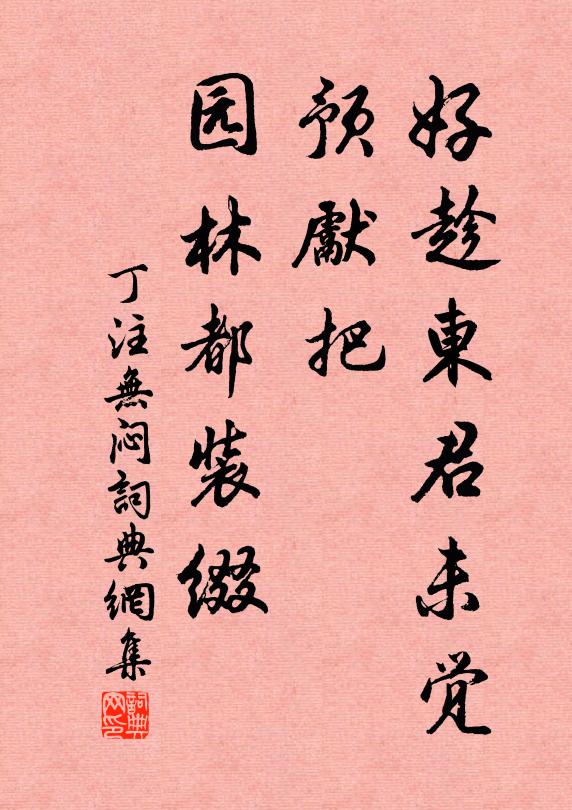 好趁東君未觉
预獻把
园林都装缀
丁注無闷詞典網集
詞典网印